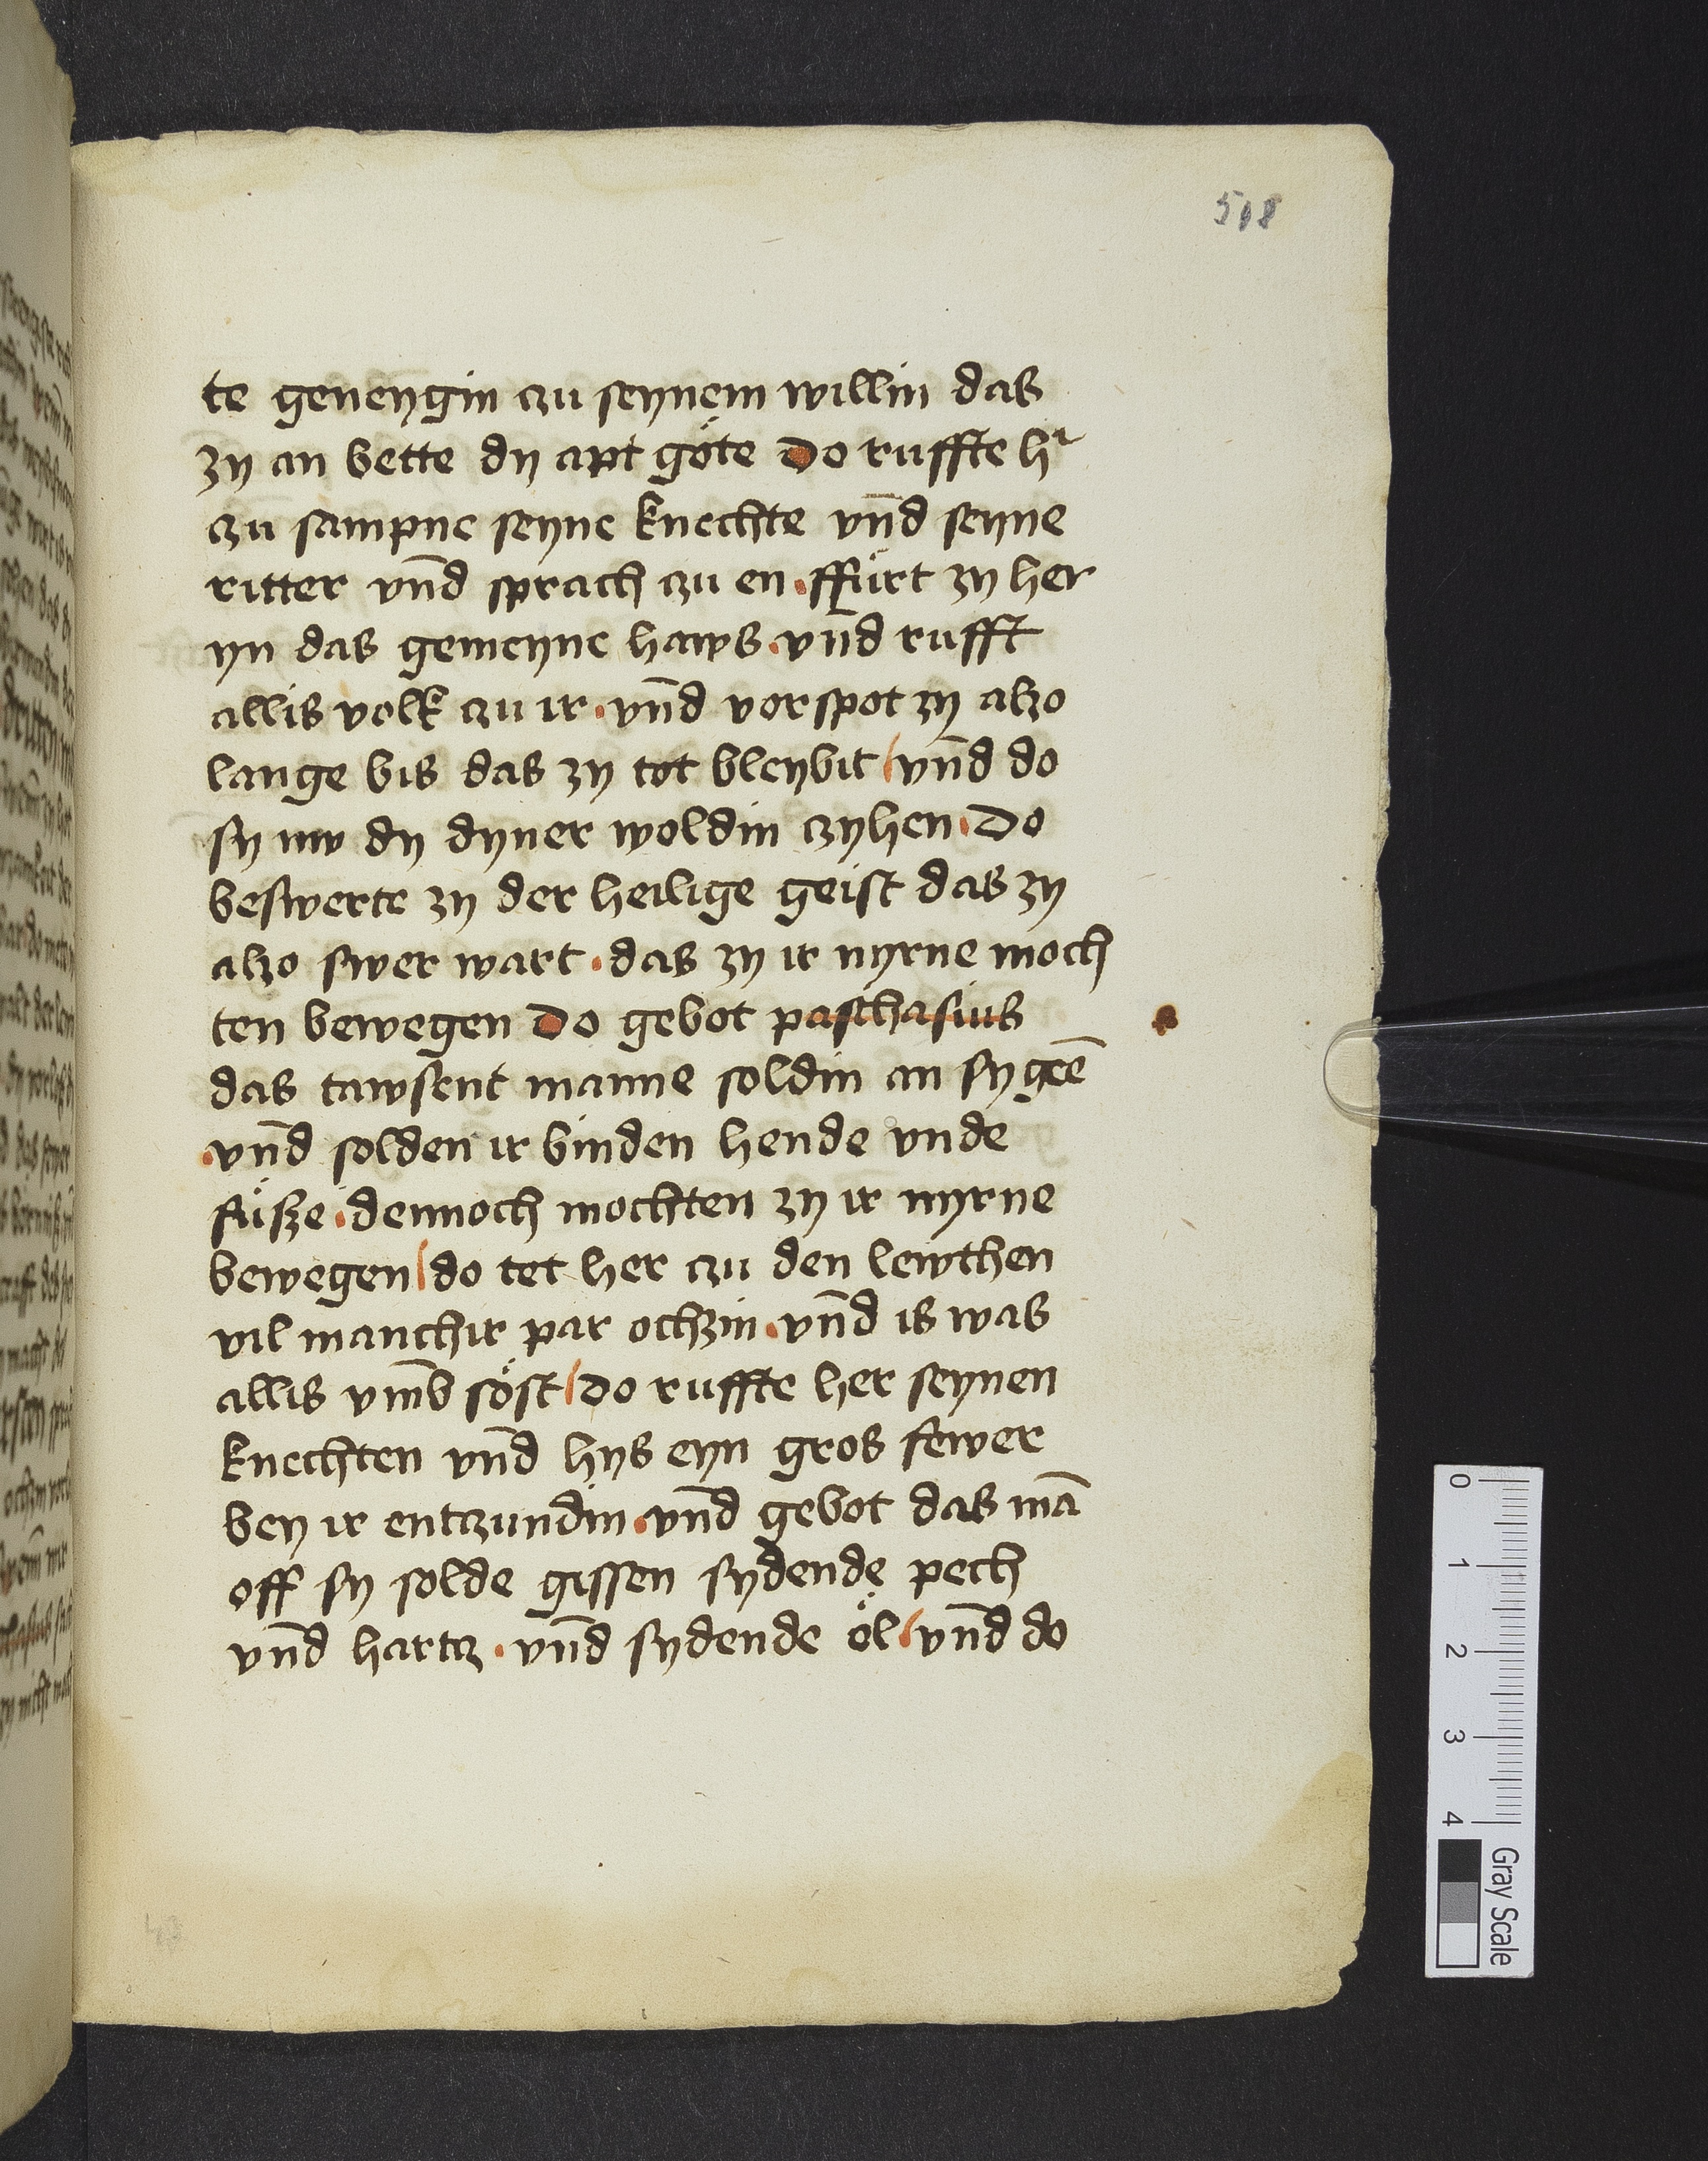 508
te geneygin czu seynem willin das
zy an bette dy apt göte Do ruffte hʳ
czu sampne seyne knechte vn̄d seyne
ritter vn̄d sprach czu en · ffürt zy her
yn das gemeyne haws · vn̄d rufft
allis volk czu ir · vn̄d vorspot zy alzo
lange bis das zy tot bleybit / vn̄d do
sy nw dy dyner woldin czyhen · Do
beswerte zy der heilige geist das zy
alzo swer wart · das zy ir nyrne moch
ten bewegen Do gebot paschasius
das tawsent manne soldin an sy geē
· vn̄d solden ir binden hende vnde
füsze · dennoch mochten zy ir nyrne
bewegen / do tet her czu den lewthen
vil manchir par ochzin · vn̄d is was
allis vm̄b söst / do ruffte her seynen
knechten vn̄d hys eyn gros fewer
bey ir entczundin · vn̄d gebot das mā
off sy solde gissen sydende pech
vn̄d hartcz · vn̄d sydende öl / vn̄d do
0
1
2
3
4
Gray Scale